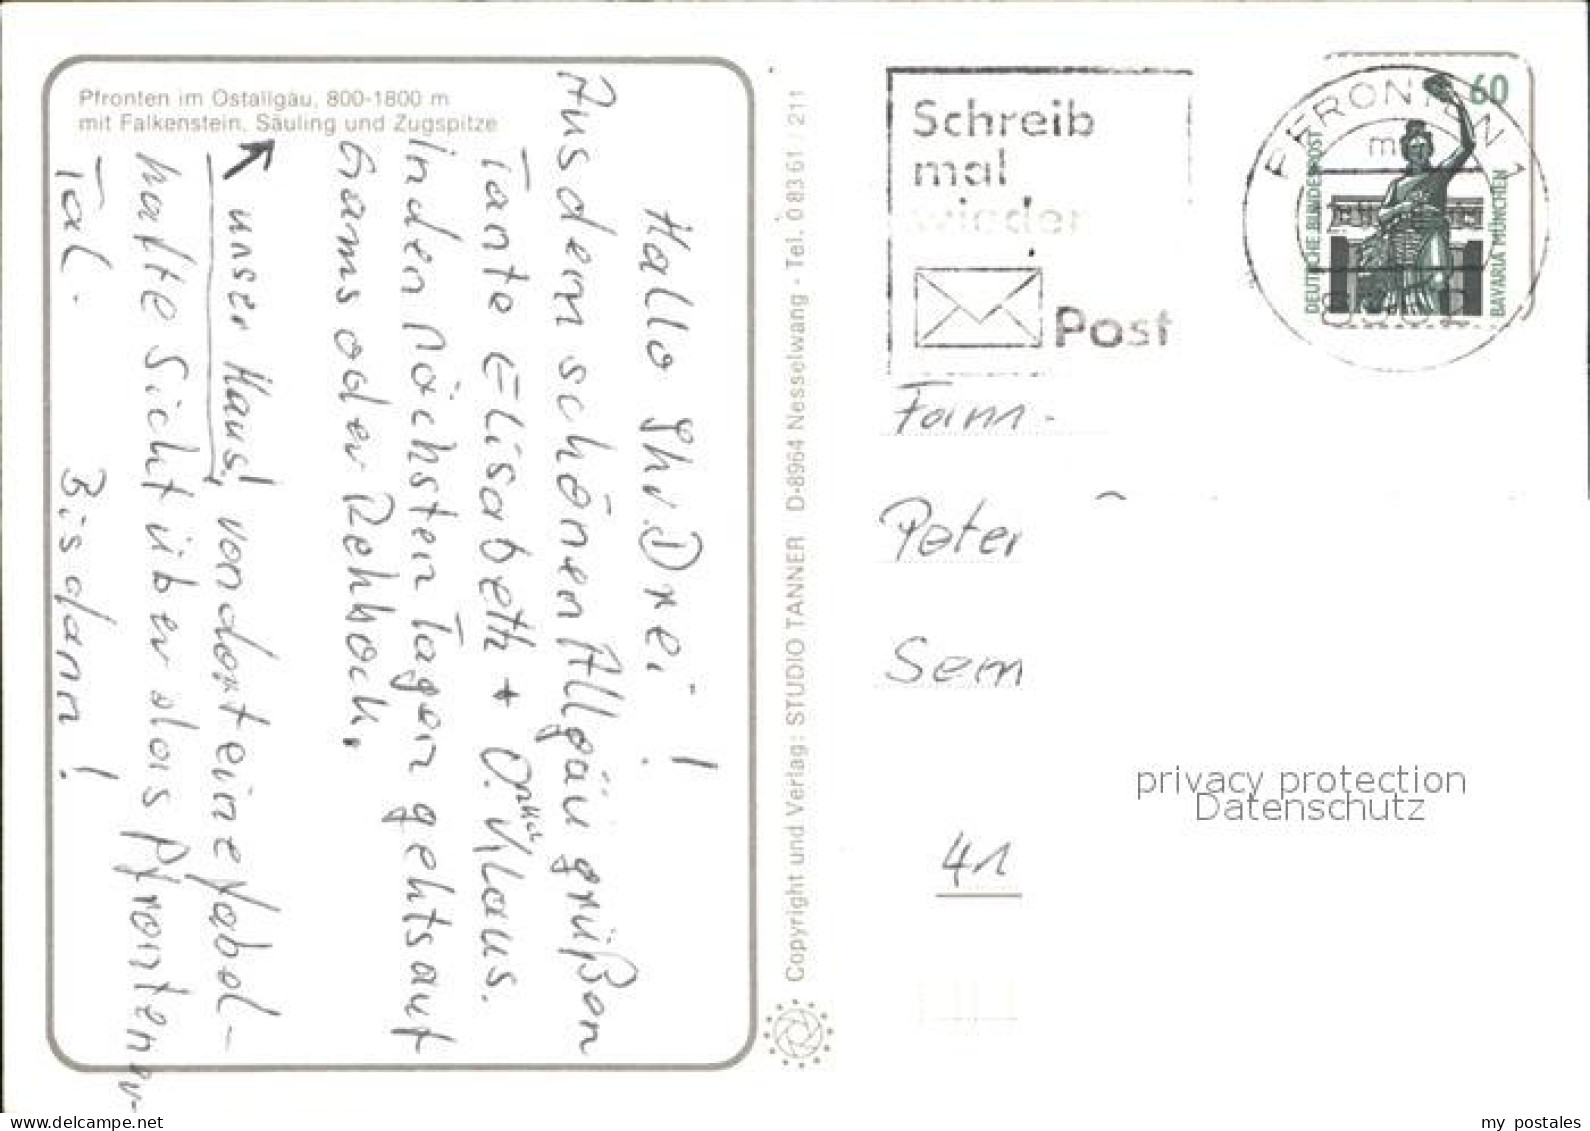 Pfronten im Ostallgäu, 800-1800 m
mit Falkenstein, Säuling und Zugspitze
Hallo Ihr Drei!
Aus dem schönen Allgäu grüßen
Tante Elisabeth + O. Klaus.
In den nächsten Tagen gehts auf
Gams oder Rehbock.
unser Haus! von dort eine fabel-
hafte Sicht über das Pfrontener
Tal.
Bis dann!
Copyright und Verlag: STUDIO TANNER D-8964 Nesselwang - Tel. 0 83 61 / 211
Schreib
mal
wieder
Post
PFRONTEN 1
60
DEUTSCHE BUNDESPOST
BAVARIA MÜNCHEN
Fam.
Peter
Sem
41
privacy protection
Datenschutz
my postales